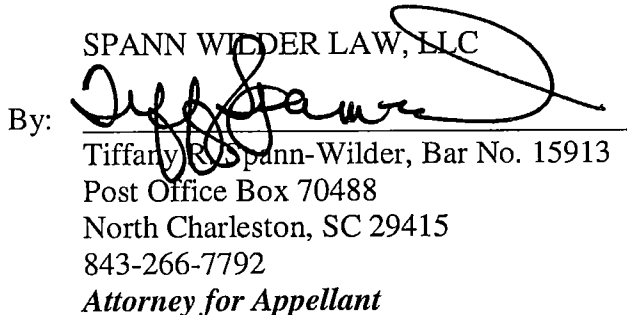 SPANN WILDER LAW, LLC
By:
Tiffany R. Spann-Wilder, Bar No. 15913
Post Office Box 70488
North Charleston, SC 29415
843-266-7792
Attorney for Appellant